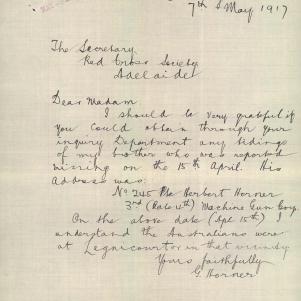 7th May 1917
The Secretary
Red Cross Society
Adelaide
Dear Madam
I should be very grateful if
you could obtain through your
inquiry Department any tidings
of my brother who was reported
missing on the 15th April. His
address was:
No 245 Pte Herbert Horner
3rd (late 16th) Machine Gun Corp
On the above date (Apl 15th) I
understand the Australians were
at Legnicourt or in that vicinity
Yours faithfully
G. Horner